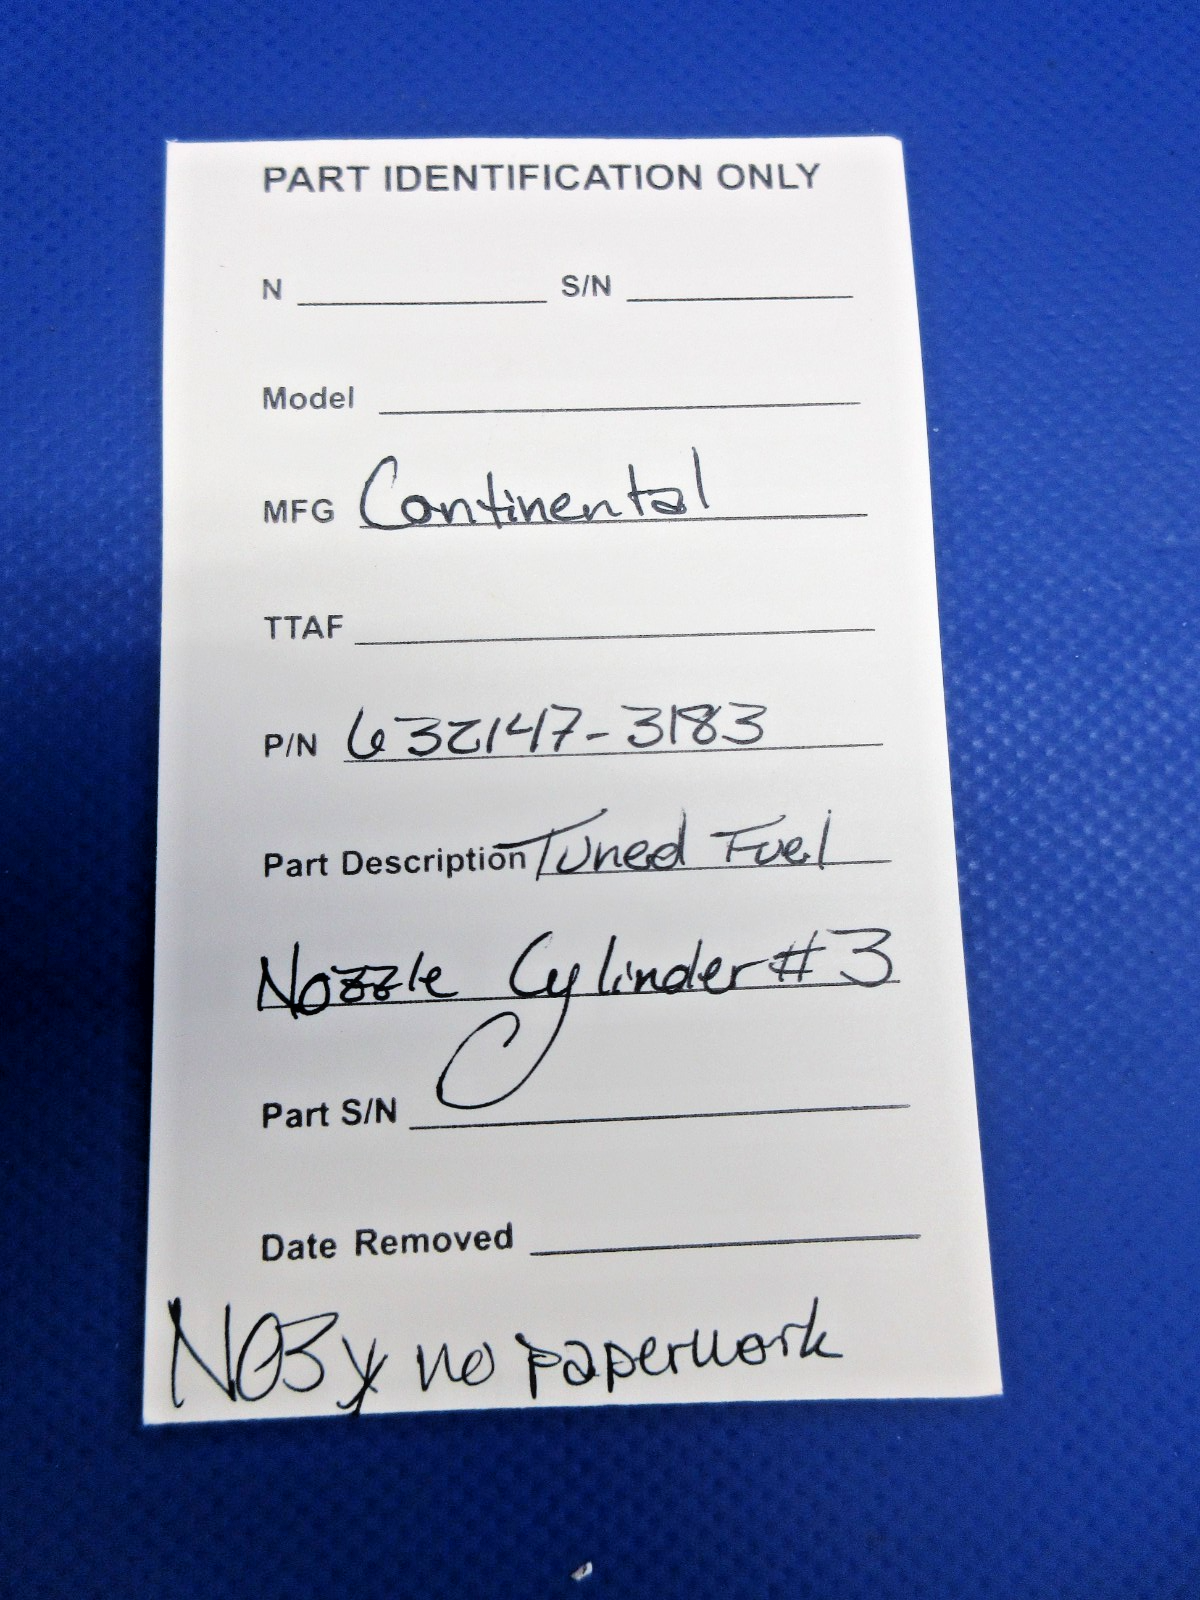 PART IDENTIFICATION ONLY
N S/N
Model
MFG Continental
TTAF
P/N 632147-3183
Part Description Tuned Fuel
Nozzle Cylinder #3
Part S/N
Date Removed
no paperwork